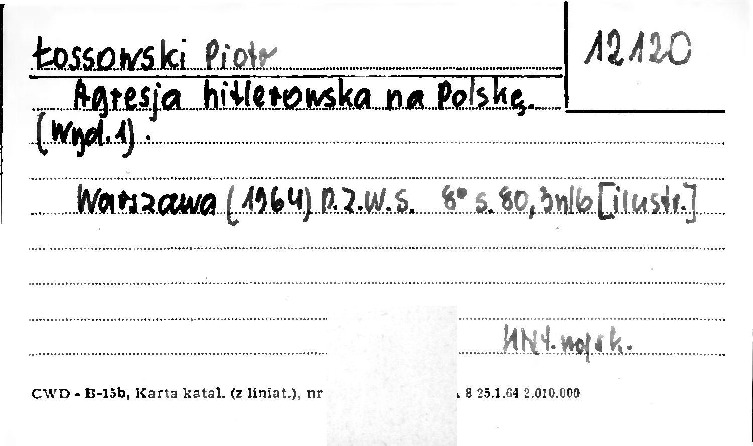 Łossowski Piotr
12120
Agresja hitlerowska na Polskę.
(Wyd. 1).
Warszawa (1964) P.Z.W.S. 8° s. 80, 3nlb [ilustr.]
CWD - B-15b, Karta katal. (z liniat.), nr 8 25.1.64 2.010.000